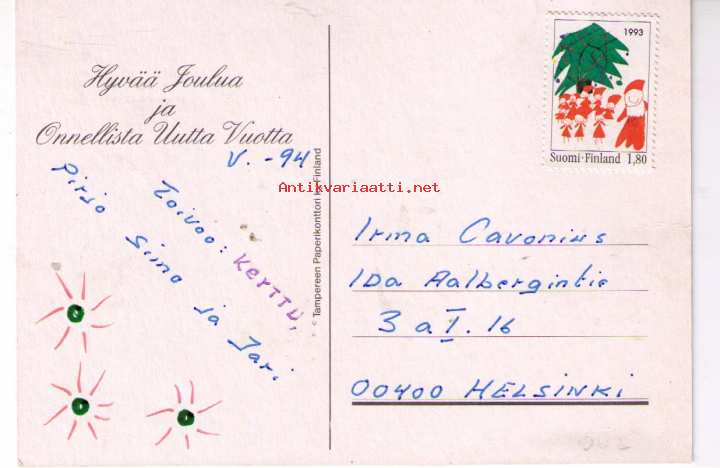 Hyvää Joulua
ja
Onnellista Uutta Vuotta
V. -94
Toivoo: KERTTU,
Pirjo Simo ja Jari
Tampereen Paperikonttori Ky Finland
Antikvariaatti.net
1993
Suomi-Finland 1,80
Irma Cavonius
IDa Aalbergintie
3 a I. 16
00400 HELSINKI